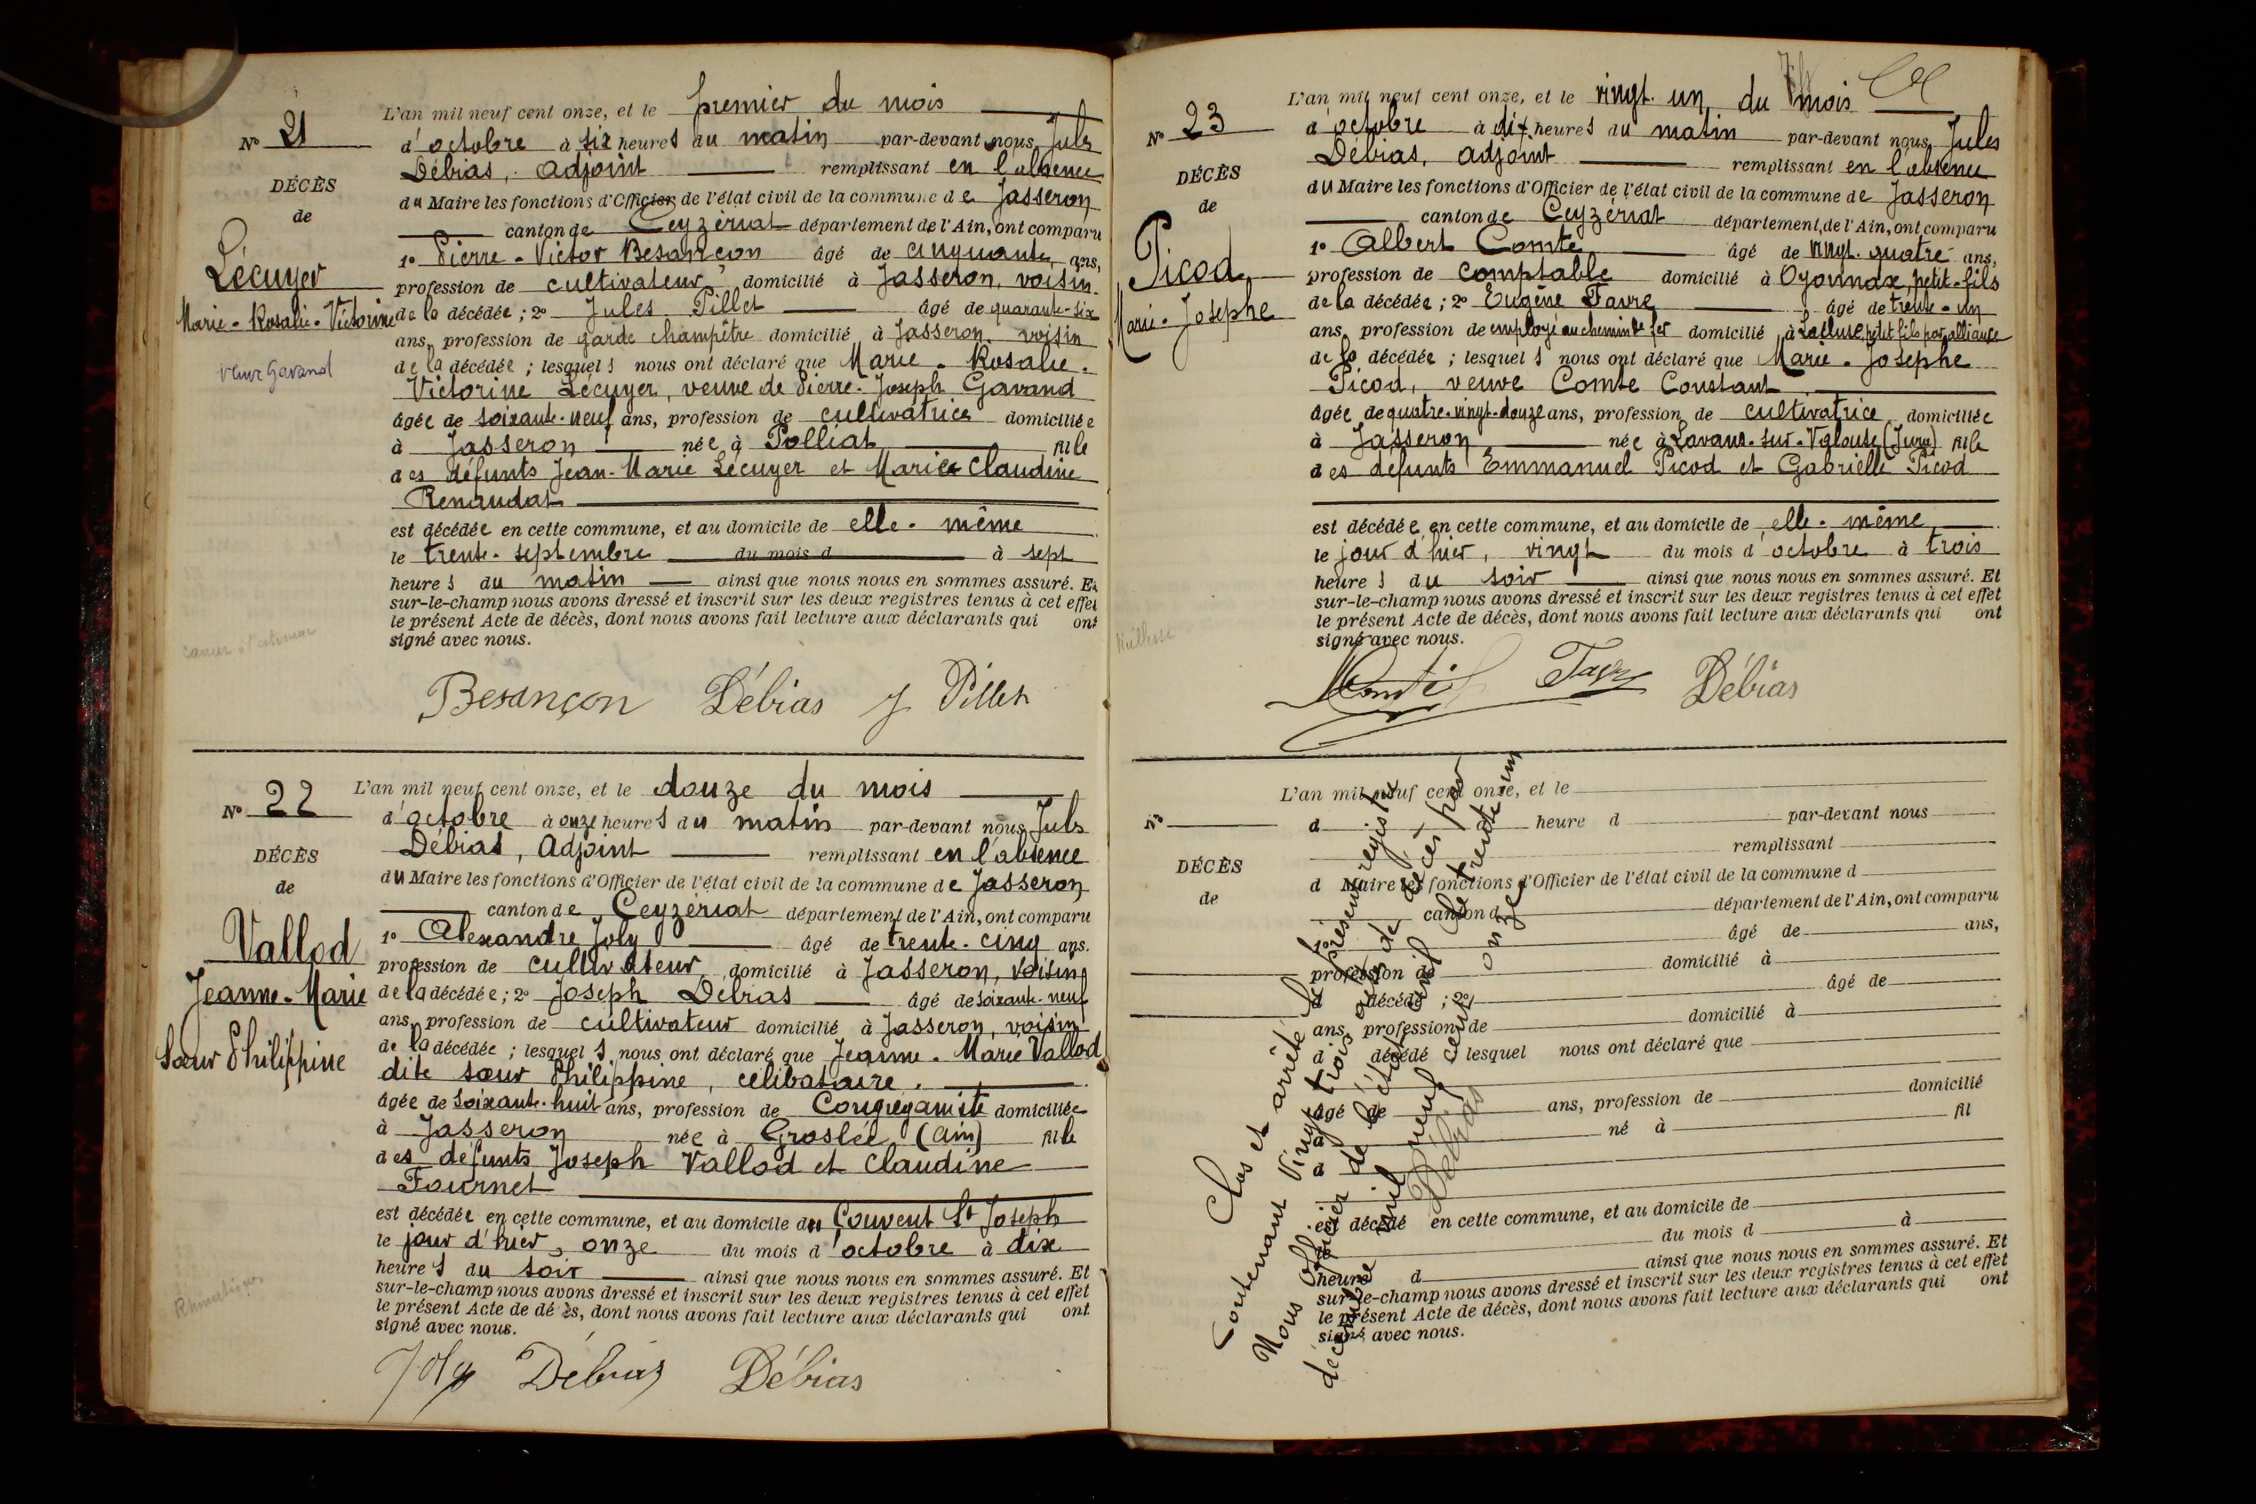 L'an mil neuf cent onze, et le premier du mois
No 21
d'octobre à six heures du matin par-devant nous Jules
Débias, Adjoint remplissant en l'absence
DÉCÈS
du Maire les fonctions d'Officier de l'état civil de la commune de Jasseron
de
canton de Ceyzériat département de l'Ain, ont comparu
1o Pierre-Victor Besançon âgé de cinquante ans,
Lécuyer
profession de cultivateur, domicilié à Jasseron, voisin
Marie-Rosalie-Victorine
de la décédée; 2o Jules Pillet âgé de quarante-six
ans, profession de garde champêtre domicilié à Jasseron, voisin
veuve Gavand
de la décédée; lesquels nous ont déclaré que Marie-Rosalie-
Victorine Lécuyer, veuve de Pierre-Joseph Gavand
âgée de soixante-neuf ans, profession de cultivatrice domiciliée
à Jasseron née à Polliat fille
des défunts Jean-Marie Lécuyer et Marie Claudine
Renaudat
est décédée en cette commune, et au domicile de elle-même
le trente-septembre du mois d à sept
heures du matin ainsi que nous nous en sommes assuré. Et
sur-le-champ nous avons dressé et inscrit sur les deux registres tenus à cet effet
le présent Acte de décès, dont nous avons fait lecture aux déclarants qui ont
signé avec nous.
Besançon Débias J Pillet
L'an mil neuf cent onze, et le douze du mois
No 22
d'octobre à onze heures du matin par-devant nous Jules
Débias, Adjoint remplissant en l'absence
DÉCÈS
du Maire les fonctions d'Officier de l'état civil de la commune de Jasseron
de
canton de Ceyzériat département de l'Ain, ont comparu
Vallod
1o Alexandre Joly âgé de trente-cinq ans.
profession de cultivateur, domicilié à Jasseron, voisin
Jeanne-Marie
de la décédée; 2o Joseph Débias âgé de soixante-neuf
ans, profession de cultivateur domicilié à Jasseron, voisin
Sœur Philippine
de la décédée; lesquels nous ont déclaré que Jeanne-Marie Vallod
dite sœur Philippine, célibataire.
âgée de soixante-huit ans, profession de Congréganiste domiciliée
à Jasseron née à Groslée (Ain) fille
des défunts Joseph Vallod et Claudine
Fournet
est décédée en cette commune, et au domicile du Couvent St Joseph
le jour d'hier, onze du mois d'octobre à dix
heures du soir ainsi que nous nous en sommes assuré. Et
sur-le-champ nous avons dressé et inscrit sur les deux registres tenus à cet effet
le présent Acte de dé ès, dont nous avons fait lecture aux déclarants qui ont
signé avec nous.
Joly Débias Débias
L'an mil neuf cent onze, et le vingt-un du mois
No 23
d'octobre à dix heures du matin par-devant nous Jules
Débias, adjoint remplissant en l'absence
DÉCÈS
du Maire les fonctions d'Officier de l'état civil de la commune de Jasseron
de
canton de Ceyzériat département de l'Ain, ont comparu
1o Albert Comte âgé de vingt-quatre ans,
Picod
profession de comptable domicilié à Oyonnax, petit-fils
Marie-Josephe
de la décédée; 2o Eugène Favre âgé de trente-un
ans, profession de employé au chemin de fer domicilié à petit fils par alliance
de la décédée; lesquels nous ont déclaré que Marie-Josephe
Picod, veuve Comte Constant
âgée de quatre-vingt-douze ans, profession de cultivatrice domiciliée
à Jasseron née à Lavans-sur-Valouse (Jura) fille
des défunts Emmanuel Picod et Gabrielle Picod
est décédée en cette commune, et au domicile de elle-même
le jour d'hier, vingt du mois d'octobre à trois
heures du soir ainsi que nous nous en sommes assuré. Et
sur-le-champ nous avons dressé et inscrit sur les deux registres tenus à cet effet
le présent Acte de décès, dont nous avons fait lecture aux déclarants qui ont
signé avec nous.
Comte Favre Débias
L'an mil neuf cent onze, et le
No
d heure d par-devant nous
remplissant
DÉCÈS
d Maire les fonctions d'Officier de l'état civil de la commune d
de
canton d département de l'Ain, ont comparu
1o âgé de ans,
profession de domicilié à
d décédé ; 2o âgé de
ans, profession de domicilié à
d décédé lesquel nous ont déclaré que
âgé de ans, profession de domicilié
à né à fil
d
est décédé en cette commune, et au domicile de
le du mois d à
heure d ainsi que nous nous en sommes assuré. Et
sur-le-champ nous avons dressé et inscrit sur les deux registres tenus à cet effet
le présent Acte de décès, dont nous avons fait lecture aux déclarants qui ont
signé avec nous.
Clos et arrêté le présent registre
contenant vingt trois actes de décès par
Nous officier de l'état civil le trente un
décembre mil neuf cent onze
Débias